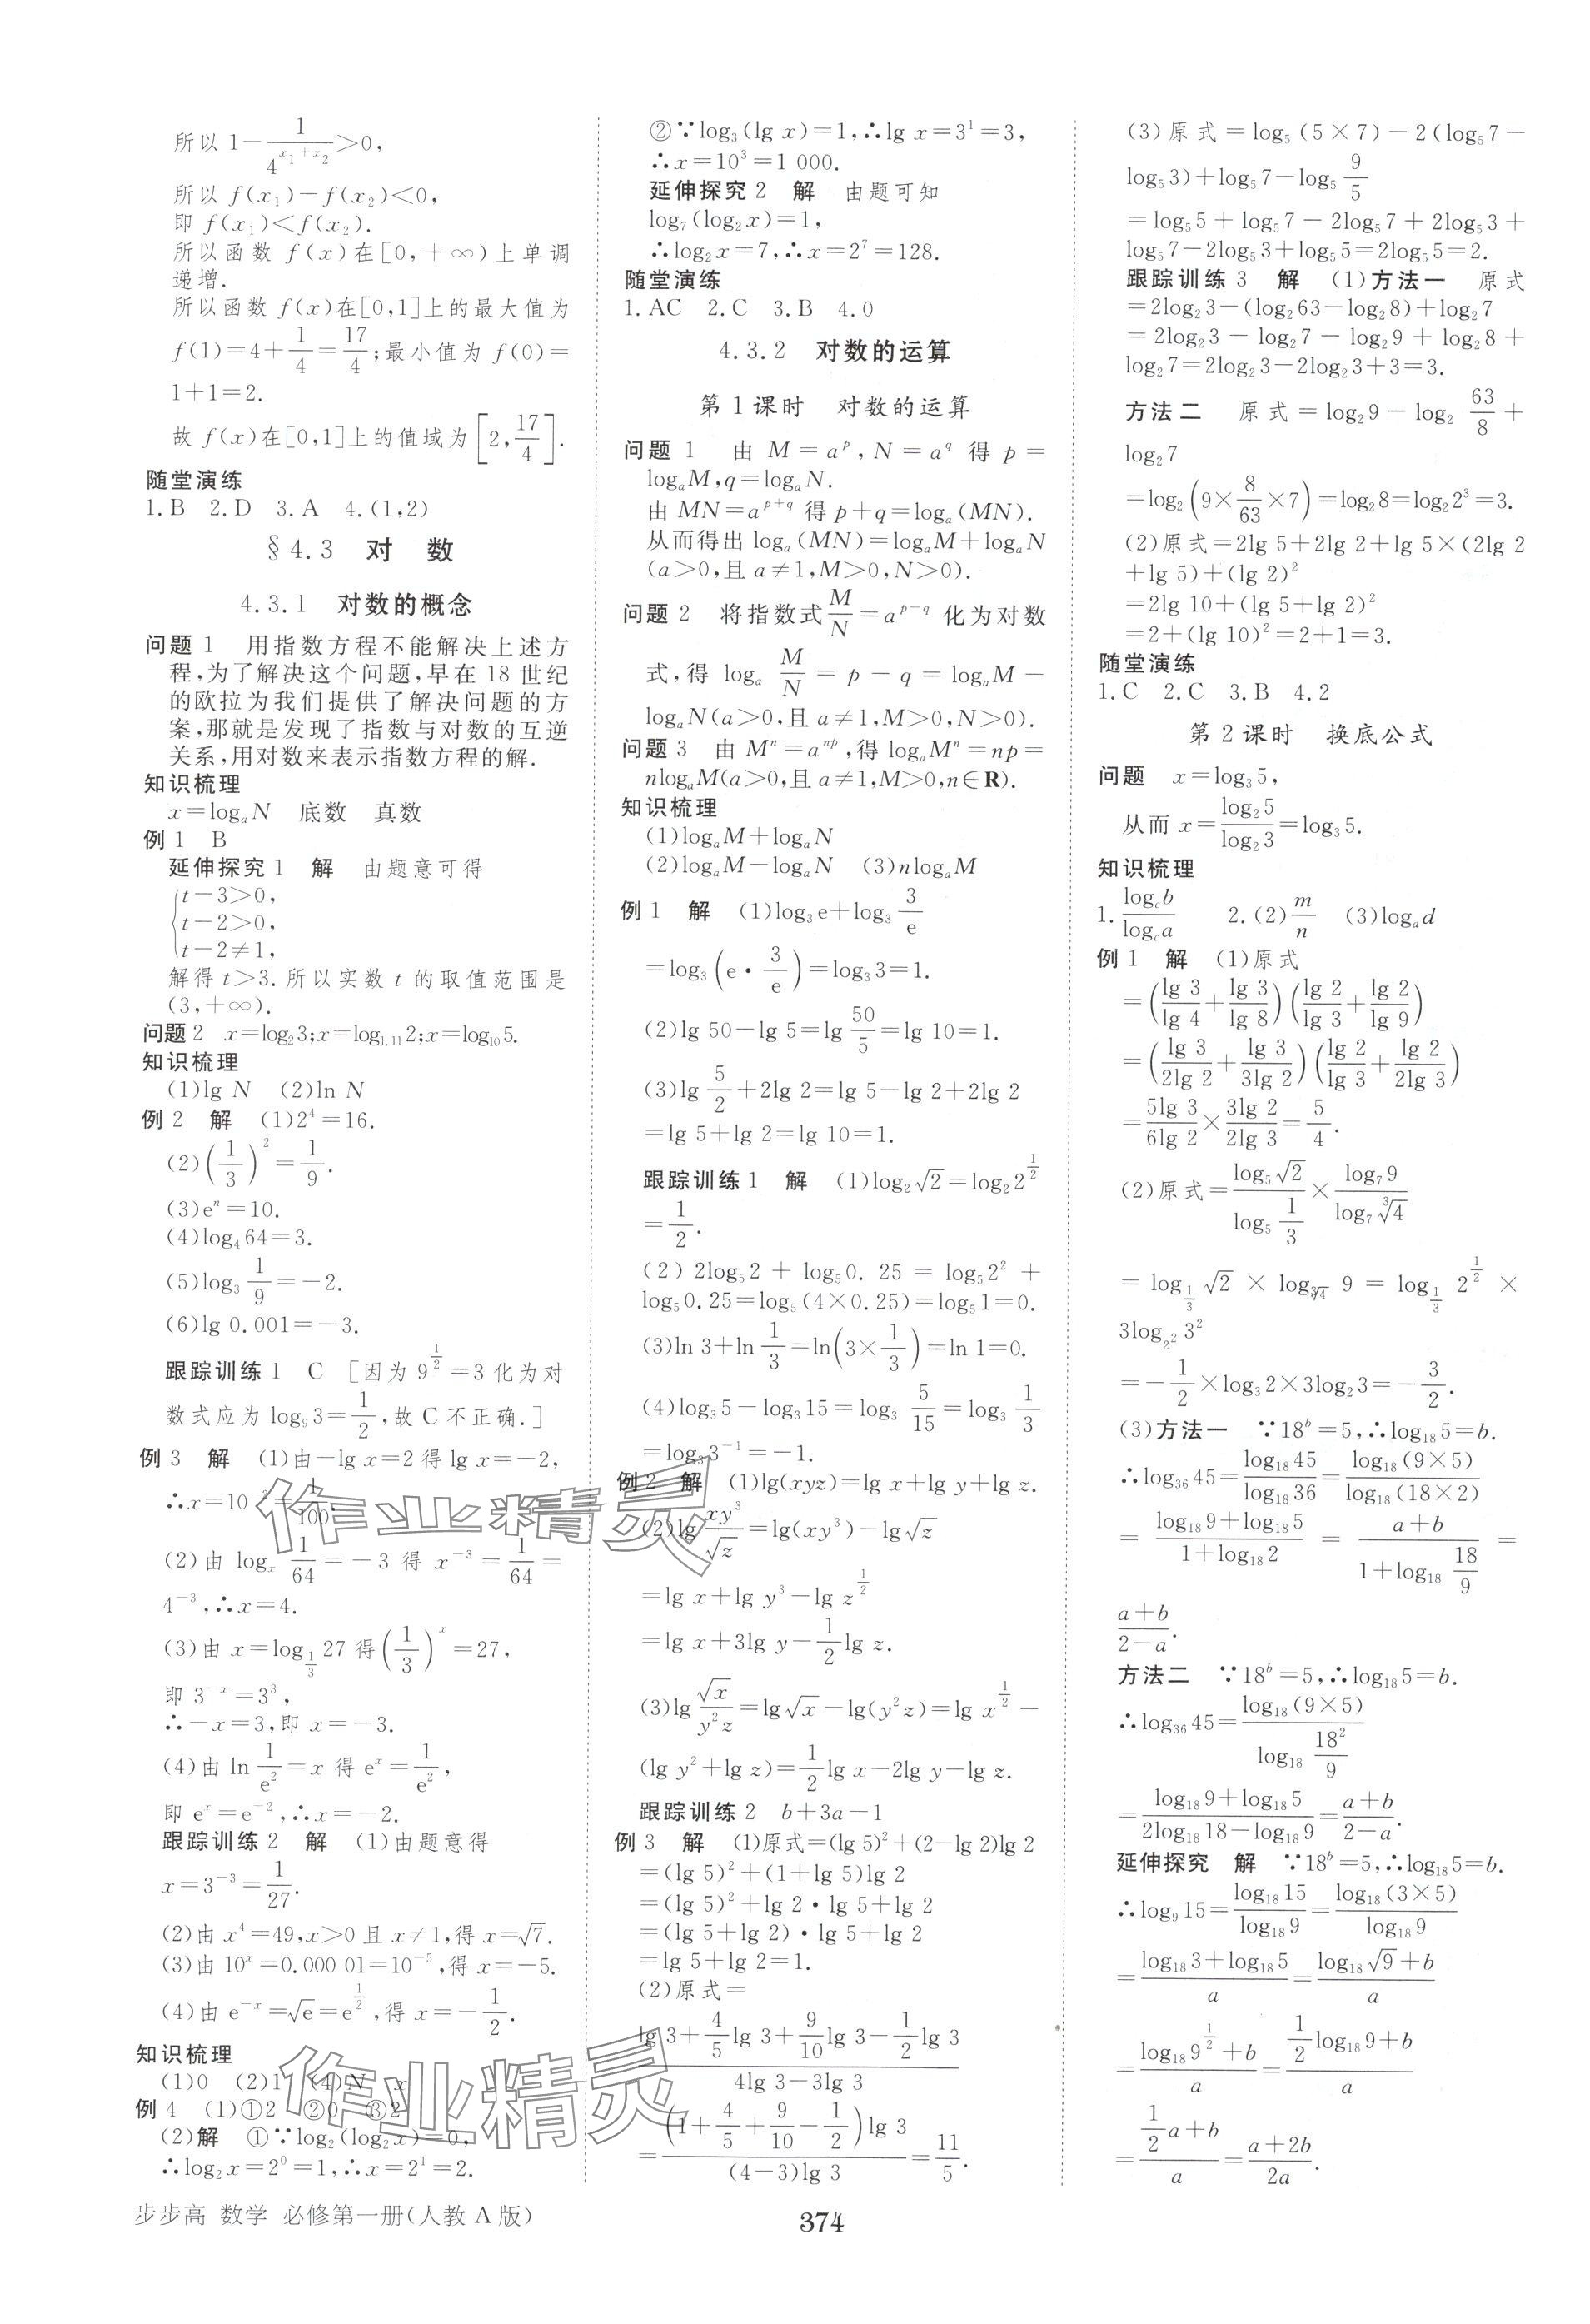 所以 1-1/4^(x₁+x₂)>0,
所以 f(x₁)-f(x₂)<0,
即 f(x₁)<f(x₂).
所以函数 f(x)在[0,+∞)上单调
递增.
所以函数 f(x)在[0,1]上的最大值为
f(1)=4+1/4=17/4;最小值为 f(0)=
1+1=2.
故 f(x)在[0,1]上的值域为[2,17/4].
随堂演练
1.B 2.D 3.A 4.(1,2)
§4.3 对 数
4.3.1 对数的概念
问题 1 用指数方程不能解决上述方
程,为了解决这个问题,早在 18 世纪
的欧拉为我们提供了解决问题的方
案,那就是发现了指数与对数的互逆
关系,用对数来表示指数方程的解.
知识梳理
x=logₐN 底数 真数
例 1 B
延伸探究 1 解 由题意可得
{t-3>0,
t-2>0,
t-2≠1,
解得 t>3.所以实数 t 的取值范围是
(3,+∞).
问题 2 x=log₂3;x=log₁.₁₁2;x=log₁₀5.
知识梳理
(1)lg N (2)ln N
例 2 解 (1)2⁴=16.
(2)(1/3)²=1/9.
(3)eⁿ=10.
(4)log₄64=3.
(5)log₃ 1/9=-2.
(6)lg 0.001=-3.
跟踪训练 1 C [因为 9^(1/2)=3 化为对
数式应为 log₉3=1/2,故 C 不正确.]
例 3 解 (1)由-lg x=2 得 lg x=-2,
∴x=10⁻²=1/100.
(2)由 logₓ 1/64=-3 得 x⁻³=1/64=
4⁻³,∴x=4.
(3)由 x=log_(1/3) 27 得(1/3)ˣ=27,
即 3⁻ˣ=3³,
∴-x=3,即 x=-3.
(4)由 ln 1/e²=x 得 eˣ=1/e²,
即 eˣ=e⁻²,∴x=-2.
跟踪训练 2 解 (1)由题意得
x=3⁻³=1/27.
(2)由 x⁴=49,x>0 且 x≠1,得 x=√7.
(3)由 10ˣ=0.000 01=10⁻⁵,得 x=-5.
(4)由 e⁻ˣ=√e=e^(1/2),得 x=-1/2.
知识梳理
(1)0 (2)1 (4)N x
例 4 (1)①2 ②0 ③2
(2)解 ①∵log₂(log₂x)=0,
∴log₂x=2⁰=1,∴x=2¹=2.
②∵log₃(lg x)=1,∴lg x=3¹=3,
∴x=10³=1 000.
延伸探究 2 解 由题可知
log₇(log₂x)=1,
∴log₂x=7,∴x=2⁷=128.
随堂演练
1.AC 2.C 3.B 4.0
4.3.2 对数的运算
第 1 课时 对数的运算
问题 1 由 M=aᵖ,N=a^q 得 p=
logₐM,q=logₐN.
由 MN=a^(p+q) 得 p+q=logₐ(MN).
从而得出 logₐ(MN)=logₐM+logₐN
(a>0,且 a≠1,M>0,N>0).
问题 2 将指数式 M/N=a^(p-q) 化为对数
式,得 logₐ M/N=p-q=logₐM-
logₐN(a>0,且 a≠1,M>0,N>0).
问题 3 由 Mⁿ=aⁿᵖ,得 logₐMⁿ=np=
nlogₐM(a>0,且 a≠1,M>0,n∈R).
知识梳理
(1)logₐM+logₐN
(2)logₐM-logₐN (3)nlogₐM
例 1 解 (1)log₃e+log₃ 3/e
=log₃(e·3/e)=log₃3=1.
(2)lg 50-lg 5=lg 50/5=lg 10=1.
(3)lg 5/2+2lg 2=lg 5-lg 2+2lg 2
=lg 5+lg 2=lg 10=1.
跟踪训练 1 解 (1)log₂√2=log₂2^(1/2)
=1/2.
(2)2log₅2+log₅0.25=log₅2²+
log₅0.25=log₅(4×0.25)=log₅1=0.
(3)ln 3+ln 1/3=ln(3×1/3)=ln 1=0.
(4)log₃5-log₃15=log₃ 5/15=log₃ 1/3
=log₃3⁻¹=-1.
例 2 解 (1)lg(xyz)=lg x+lg y+lg z.
(2)lg xy³/√z=lg(xy³)-lg√z
=lg x+lg y³-lg z^(1/2)
=lg x+3lg y-1/2 lg z.
(3)lg √x/(y²z)=lg√x-lg(y²z)=lg x^(1/2)-
(lg y²+lg z)=1/2 lg x-2lg y-lg z.
跟踪训练 2 b+3a-1
例 3 解 (1)原式=(lg 5)²+(2-lg 2)lg 2
=(lg 5)²+(1+lg 5)lg 2
=(lg 5)²+lg 2·lg 5+lg 2
=(lg 5+lg 2)·lg 5+lg 2
=lg 5+lg 2=1.
(2)原式=
(lg 3+4/5 lg 3+9/10 lg 3-1/2 lg 3)/(4lg 3-3lg 3)
=(1+4/5+9/10-1/2)lg 3/((4-3)lg 3)=11/5.
(3)原式=log₅(5×7)-2(log₅7-
log₅3)+log₅7-log₅ 9/5
=log₅5+log₅7-2log₅7+2log₅3+
log₅7-2log₅3+log₅5=2log₅5=2.
跟踪训练 3 解 (1)方法一 原式
=2log₂3-(log₂63-log₂8)+log₂7
=2log₂3-log₂7-log₂9+log₂8+
log₂7=2log₂3-2log₂3+3=3.
方法二 原式=log₂9-log₂ 63/8+
log₂7
=log₂(9×8/63×7)=log₂8=log₂2³=3.
(2)原式=2lg 5+2lg 2+lg 5×(2lg 2
+lg 5)+(lg 2)²
=2lg 10+(lg 5+lg 2)²
=2+(lg 10)²=2+1=3.
随堂演练
1.C 2.C 3.B 4.2
第 2 课时 换底公式
问题 x=log₃5,
从而 x=log₂5/log₂3=log₃5.
知识梳理
1.log_c b/log_c a 2.(2)m/n (3)logₐd
例 1 解 (1)原式
=(lg 3/lg 4+lg 3/lg 8)(lg 2/lg 3+lg 2/lg 9)
=(lg 3/2lg 2+lg 3/3lg 2)(lg 2/lg 3+lg 2/2lg 3)
=5lg 3/6lg 2×3lg 2/2lg 3=5/4.
(2)原式=log₅√2/log₅ 1/3×log₇9/log₇ ³√4
=log_(1/3) √2×log_(³√4) 9=log_(1/3) 2^(1/2)×
3log_(2²) 3²
=-1/2×log₃2×3log₂3=-3/2.
(3)方法一 ∵18ᵇ=5,∴log₁₈5=b.
∴log₃₆45=log₁₈45/log₁₈36=log₁₈(9×5)/log₁₈(18×2)
=(log₁₈9+log₁₈5)/(1+log₁₈2)=(a+b)/(1+log₁₈ 18/9)=
(a+b)/(2-a).
方法二 ∵18ᵇ=5,∴log₁₈5=b.
∴log₃₆45=log₁₈(9×5)/log₁₈ 18²/9
=(log₁₈9+log₁₈5)/(2log₁₈18-log₁₈9)=(a+b)/(2-a).
延伸探究 解 ∵18ᵇ=5,∴log₁₈5=b.
∴log₉15=log₁₈15/log₁₈9=log₁₈(3×5)/log₁₈9
=(log₁₈3+log₁₈5)/a=(log₁₈√9+b)/a
=(log₁₈9^(1/2)+b)/a=(1/2 log₁₈9+b)/a
=(1/2 a+b)/a=(a+2b)/2a.
步步高 数学 必修第一册(人教 A 版)
374
作业精灵
作业精灵